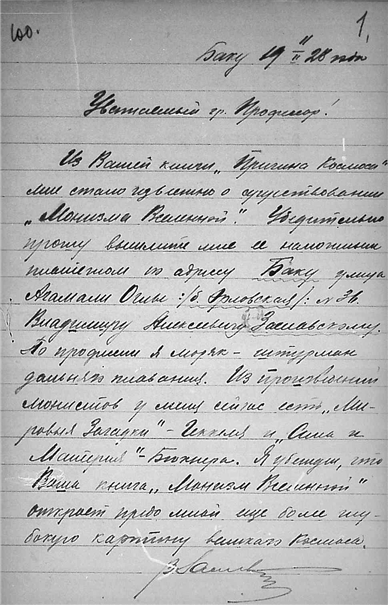 100.
1.
Баку 19 11/II 28 года
Уважаемый гр. Профессор!
Из Вашей книги „Причина Космоса"
мне стало известно о существовании
„Монизма Вселенной". Убедительно
прошу вышлите мне ее наложенным
платежом по адресу Баку улица
Агамали Оглы :/б. Орловская/: № 36
Владимиру Алексеевичу Заславскому.
По профессии я моряк - штурман
дальнего плавания. Из произведений
монистов у меня сейчас есть „Ми-
ровыя Загадки" - Геккеля и „Сила и
Материя" - Бюхнера. Я убежден, что
Ваша книга „Монизм Вселенной"
откроет предо мной еще более глу-
бокую картину великого Космоса.